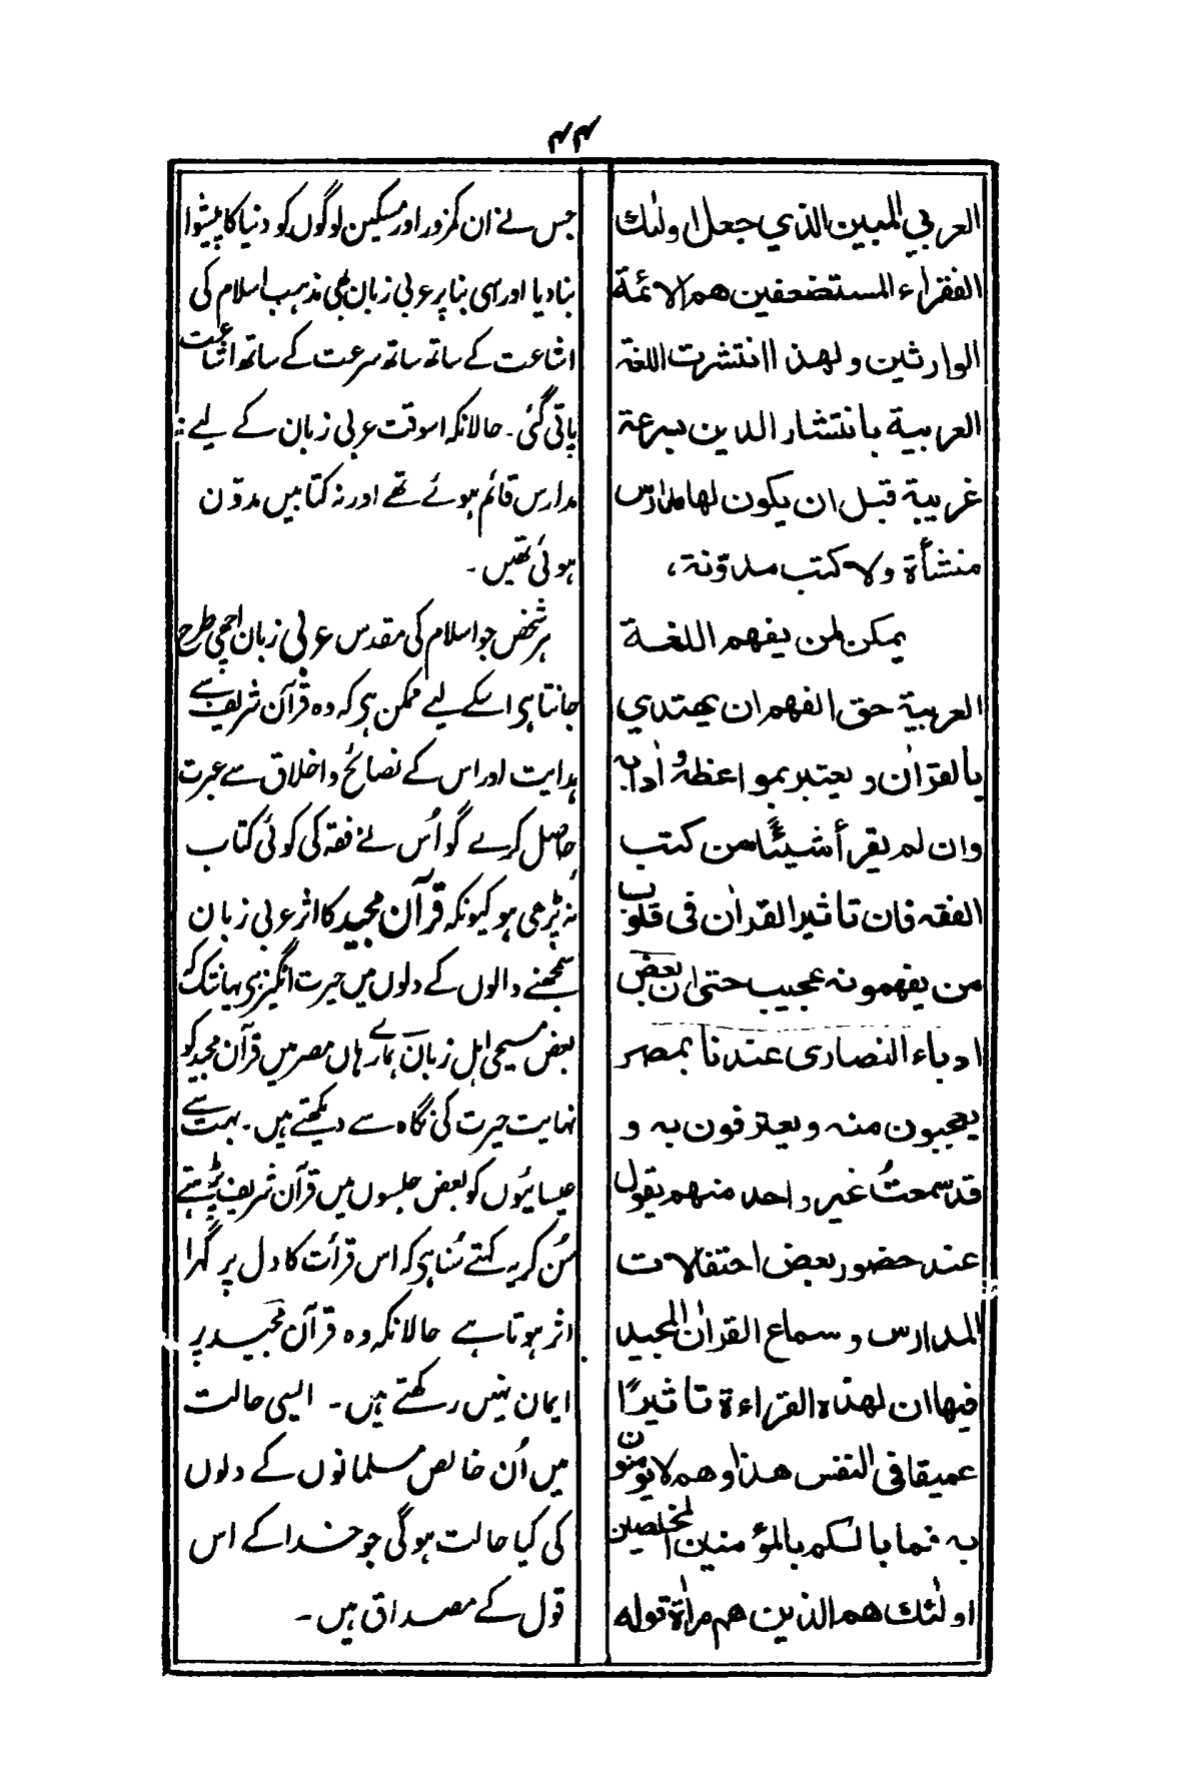 ۴۴
العربي المبين الذي جعل اولئك
الفقراء المستضعفين هم الائمة
الوارثين ولهذا انتشرت اللغة
العربية بانتشار الدين بسرعة
غريبة قبل ان يكون لها مدارس
منشأة ولا كتب مدوّنة،
يمكن لمن يفهم اللغة
العربية حق الفهم ان يهتدي
بالقراٰن و يعتبر بمواعظه واٰدابه
وان لم يقرأ شيئًا من كتب
الفقه فان تاثير القراٰن فى قلوب
من يفهمونه عجيب حتى ان بعض
ادباء النصارى عندنا بمصر
يعجبون منه ويعترفون به و
قد سمعتُ غير واحد منهم يقول
عند حضور بعض احتفالات
المدارس وسماع القراٰن المجيد
فيها ان لهذه القراءة تاثيرًا
عميقا فى النفس هذا وهم لا يؤمنون
به فما بالكم بالمؤمنين المخلصين
اولٰئك هم الذين هم مراٰة قوله
جس نے ان کمزور اور مسکین لوگوں کو دنیا کا پیشوا
بنادیا اور اسی بنا پر عربی زبان بھی مذہب اسلام کی
اشاعت کے ساتھ ساتھ سرعت کے ساتھ اشاعت
پاتی گئی۔ حالانکہ اسوقت عربی زبان کے لیے نہ
مدارس قائم ہوئے تھے اور نہ کتابیں مدوّن
ہوئی تھیں۔
ہر شخص جو اسلام کی مقدس عربی زبان اچھی طرح
جانتا ہی اسکے لیے ممکن ہی کہ وہ قرآن شریف سے
ہدایت اور اس کے نصائح و اخلاق سے عبرت
حاصل کرے گو اُس نے فقہ کی کوئی کتاب
نہ پڑھی ہو کیونکہ قرآن مجید کا اثر عربی زبان
سمجھنے والوں کے دلوں میں حیرت انگیز ہی یہانتک کہ
بعض مسیحی اہل زبان ہمارے ہاں مصر میں قرآن مجید کو
نہایت حیرت کی نگاہ سے دیکھتے ہیں۔ بہت سے
عیسائیوں کو بعض جلسوں میں قرآن شریف پڑہتے
سُن کر یہ کہتے سُنا ہی کہ اس قرأت کا دل پر گہرا
اثر ہوتا ہے حالانکہ وہ قرآن مجید پر
ایمان نہیں رکھتے ہیں۔ ایسی حالت
میں اُن خالص مسلمانوں کے دلوں
کی کیا حالت ہوگی جو خدا کے اس
قول کے مصداق ہیں۔